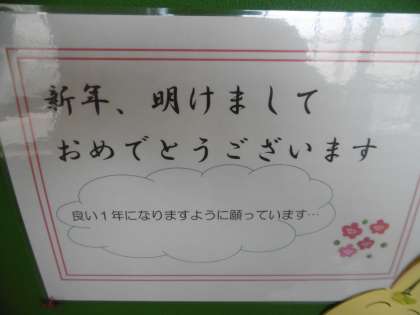 新年、明けまして
おめでとうございます
良い1年になりますように願っています…